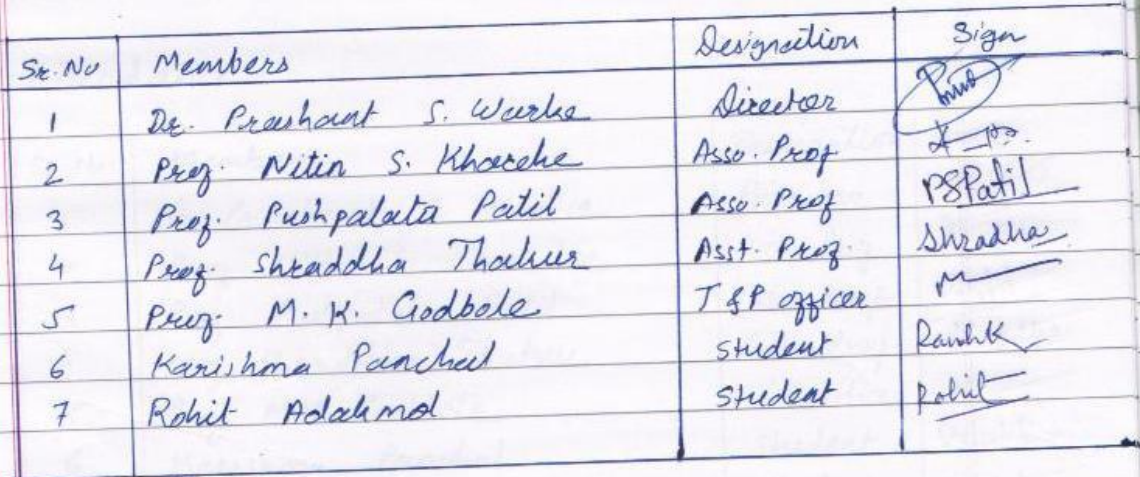 Sr. No Members Designation Sign
1 Dr. Prashant S. Warke Director
2 Prof. Nitin S. Kharche Asso. Prof
3 Prof. Pushpalata Patil Asso. Prof PSPatil
4 Prof. Shraddha Thakur Asst. Prof. Shradha
5 Prof. M. K. Godbole T &P officer
6 Karishma Panchal Student
7 Rohit Adakmol Student Rohit